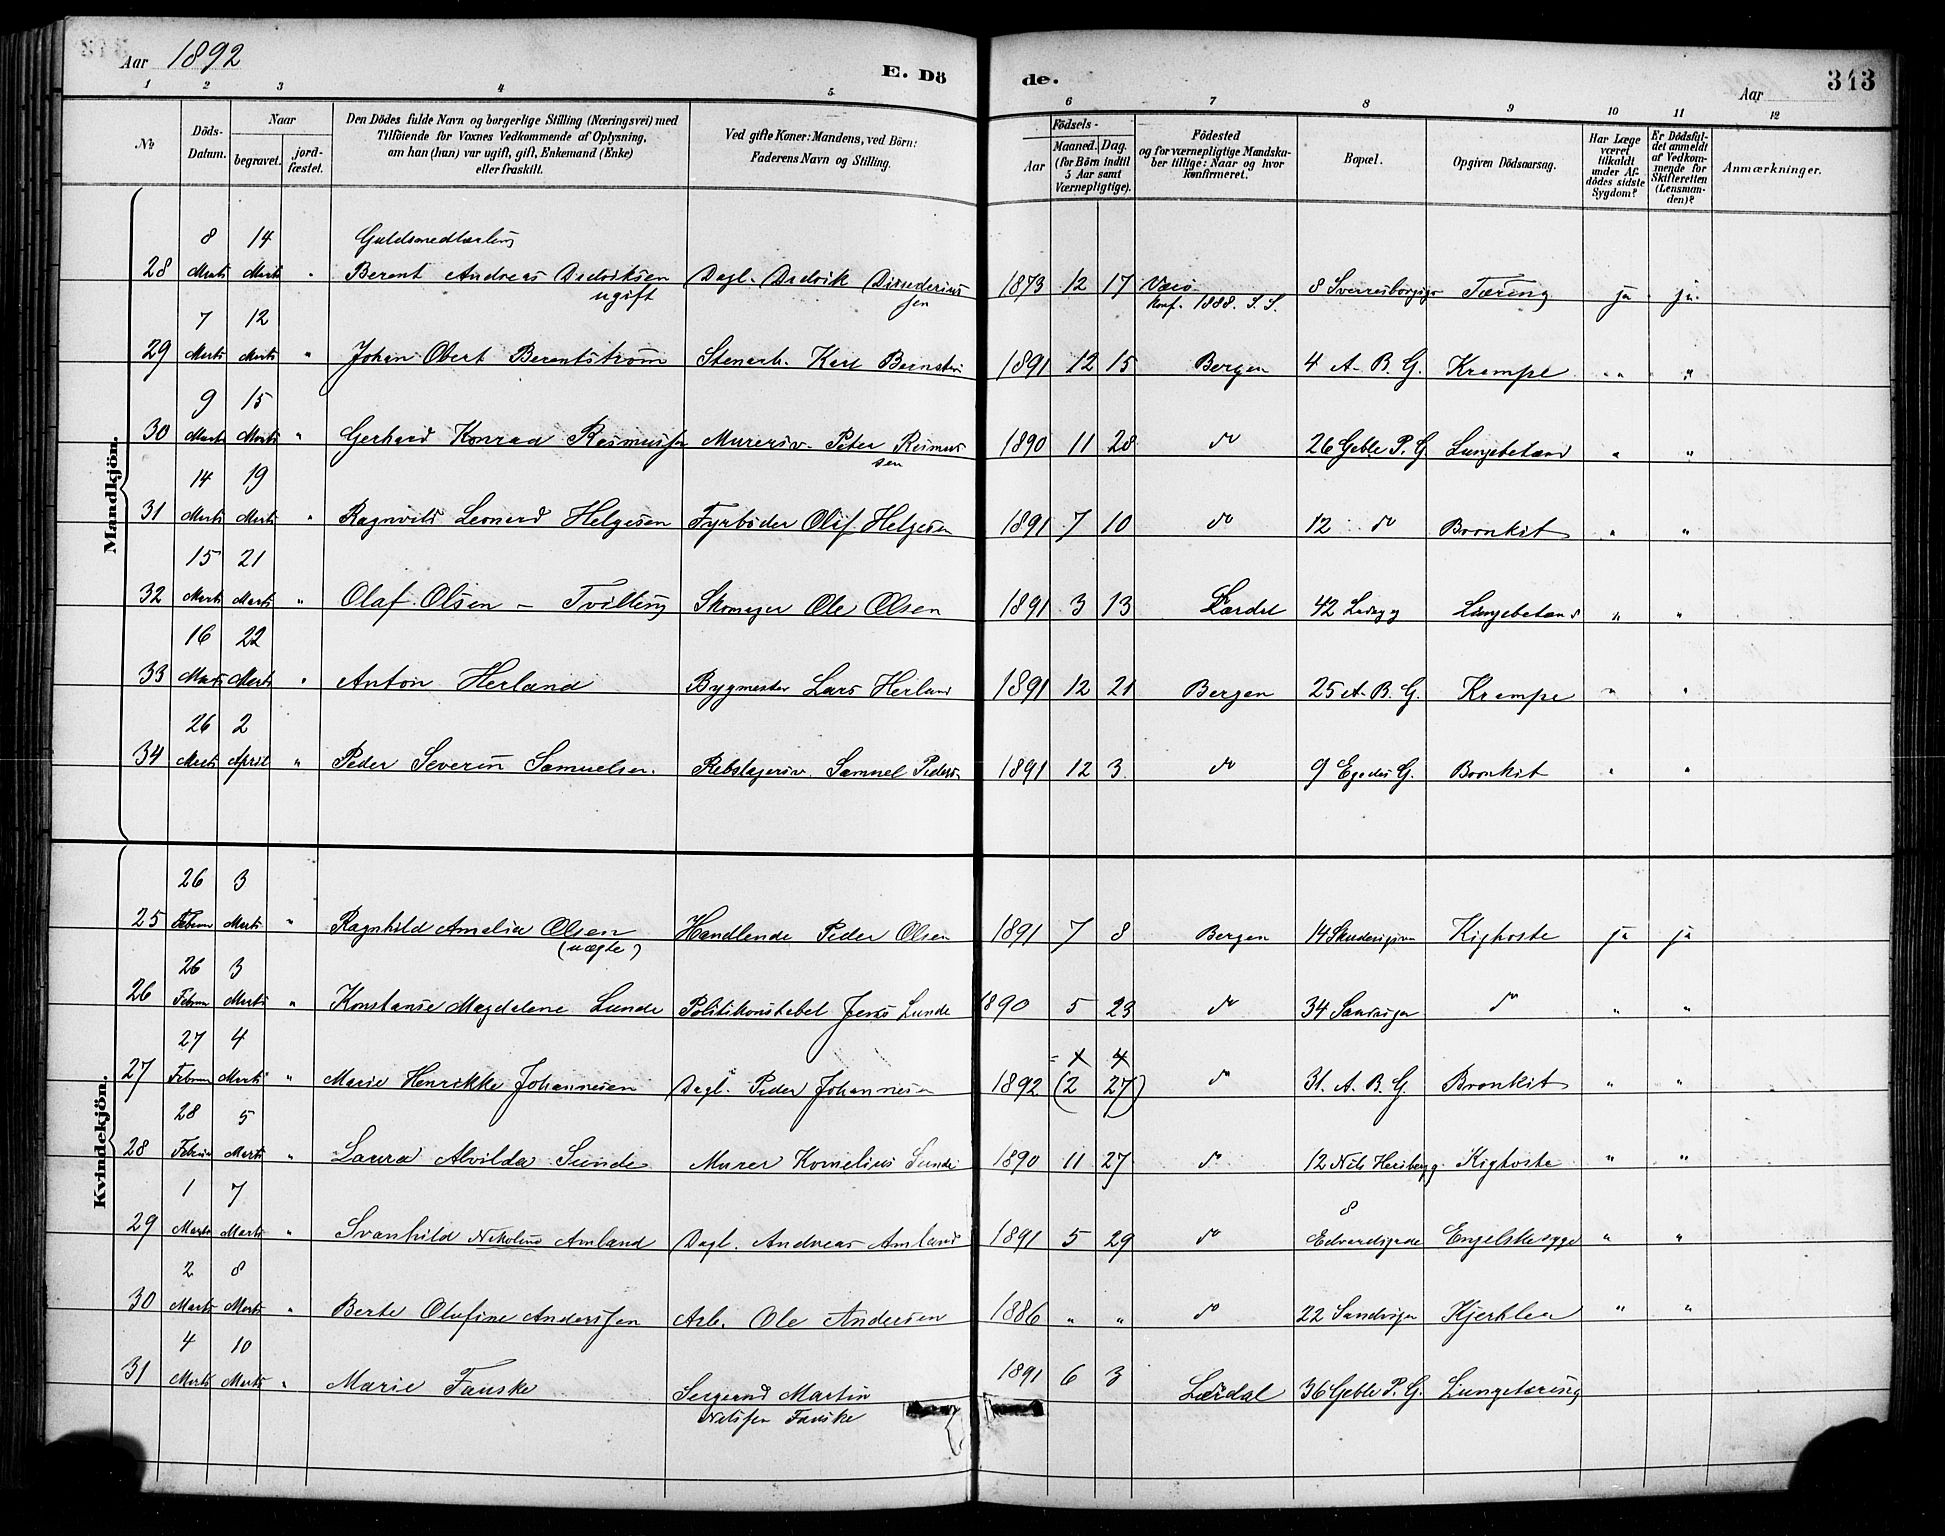 Aar 1892
E. Dö
de.
Aar
343
1 2 3 4 5 6 7 8 9 10 11 12
No
Döds-Datum.
Naar
begravet.
jord-fæstet.
Den Dödes fulde Navn og borgerlige Stilling (Næringsvei) med
Tilföiende for Voxnes Vedkommende af Oplysning,
om han (hun) var ugift, gift, Enkemand (Enke)
eller fraskilt.
Ved gifte Koner: Mandens, ved Börn:
Faderens Navn og Stilling.
Födsels-
Aar
Maaned. Dag.
(for Börn indtil
5 Aar samt
Værnepligtige).
Födested
og for værnepligtige Mandska-
ber tillige: Naar og hvor
konfirmeret.
Bopæl.
Opgiven Dödsaarsag.
Har Læge
været
tilkaldt
under Af-
dödes sidste
Sygdom?
Er Dödsfal-
det anmeldt
af Vedkom-
mende for
Skifteretten
(Lensman-
den)?
Anmærkninger.
Mandkjön.
8 14 Guldsmedlærling
28 Marts Marts " Berent Andreas Dedriksen Dagl. Dedrik 1873 12 17 Værö 8 Sverresborgsg. Tæring ja ja
ugift sen konf. 1888. S. S.
7 12
29 Marts Marts " Johan Obert Berentstrøm Stenarb. Karl 1891 12 15 Bergen 4 A. B. G. Krampe " "
9 15
30 Marts Marts " Gerhard Konrad Rasmussen Murersv. Peter Rasmus 1890 11 28 do 26 Geble P. G Lungebetænd " "
sen
14 19
31 Marts Marts " Ragnvald Leonard Helgesen Fyrbøder Olaf Helgesen 1891 7 10 do 12 do Bronkit " "
15 21
32 Marts Marts " Olaf Olsen - Tvilling Skomager Ole Olsen 1891 3 13 Lærdal 42 Ladeg g Lungebetænd " "
16 22
33 Marts Marts " Anton Herland Bygmester Lars Herland 1891 12 21 Bergen 25 A. B. G. Krampe " "
26 2
34 Marts April " Peder Severin Samuelsen. Rebslagersv. Samuel Peders. 1891 12 3 do 9 Egedes G. Bronkit " "
Kvindekjön.
26 3
25 Februar Marts " Ragnhild Amalia Olsen Handlende Peder Olsen 1891 7 8 Bergen 14 Kighoste ja ja
(uægte)
26 3
26 Februar Marts " Konstanse Magdalene Lunde Politikonstabel Jens Lunde 1890 5 23 do 34 Sandvigen do " "
27 4 4
27 Februar Marts " Marie Henrikke Johannesen Dagl. Peder Johannesen 1892 (2 27) do 31. A. B. G. Bronkit " "
28 5
28 Februar Marts " Laura Alvilda Sunde Murer Kornelius Sunde 1890 11 27 do 12 Nils Kighoste " "
1 7 8
29 Marts Marts " Svanhild Nikoline Amland Dagl. Andreas Amland 1891 5 29 do Edvardsgade Engelskesyge " "
2 8
30 Marts Marts " Berte Olufine Anderssen Arb. Ole Andersen 1886 " " do 22 Sandvigen " "
4 10
31 Marts Marts " Marie Fauske Sergeand Martin 1891 6 3 Lærdal 36 Geble P. G. Lungetæring
Nilssen Fauske